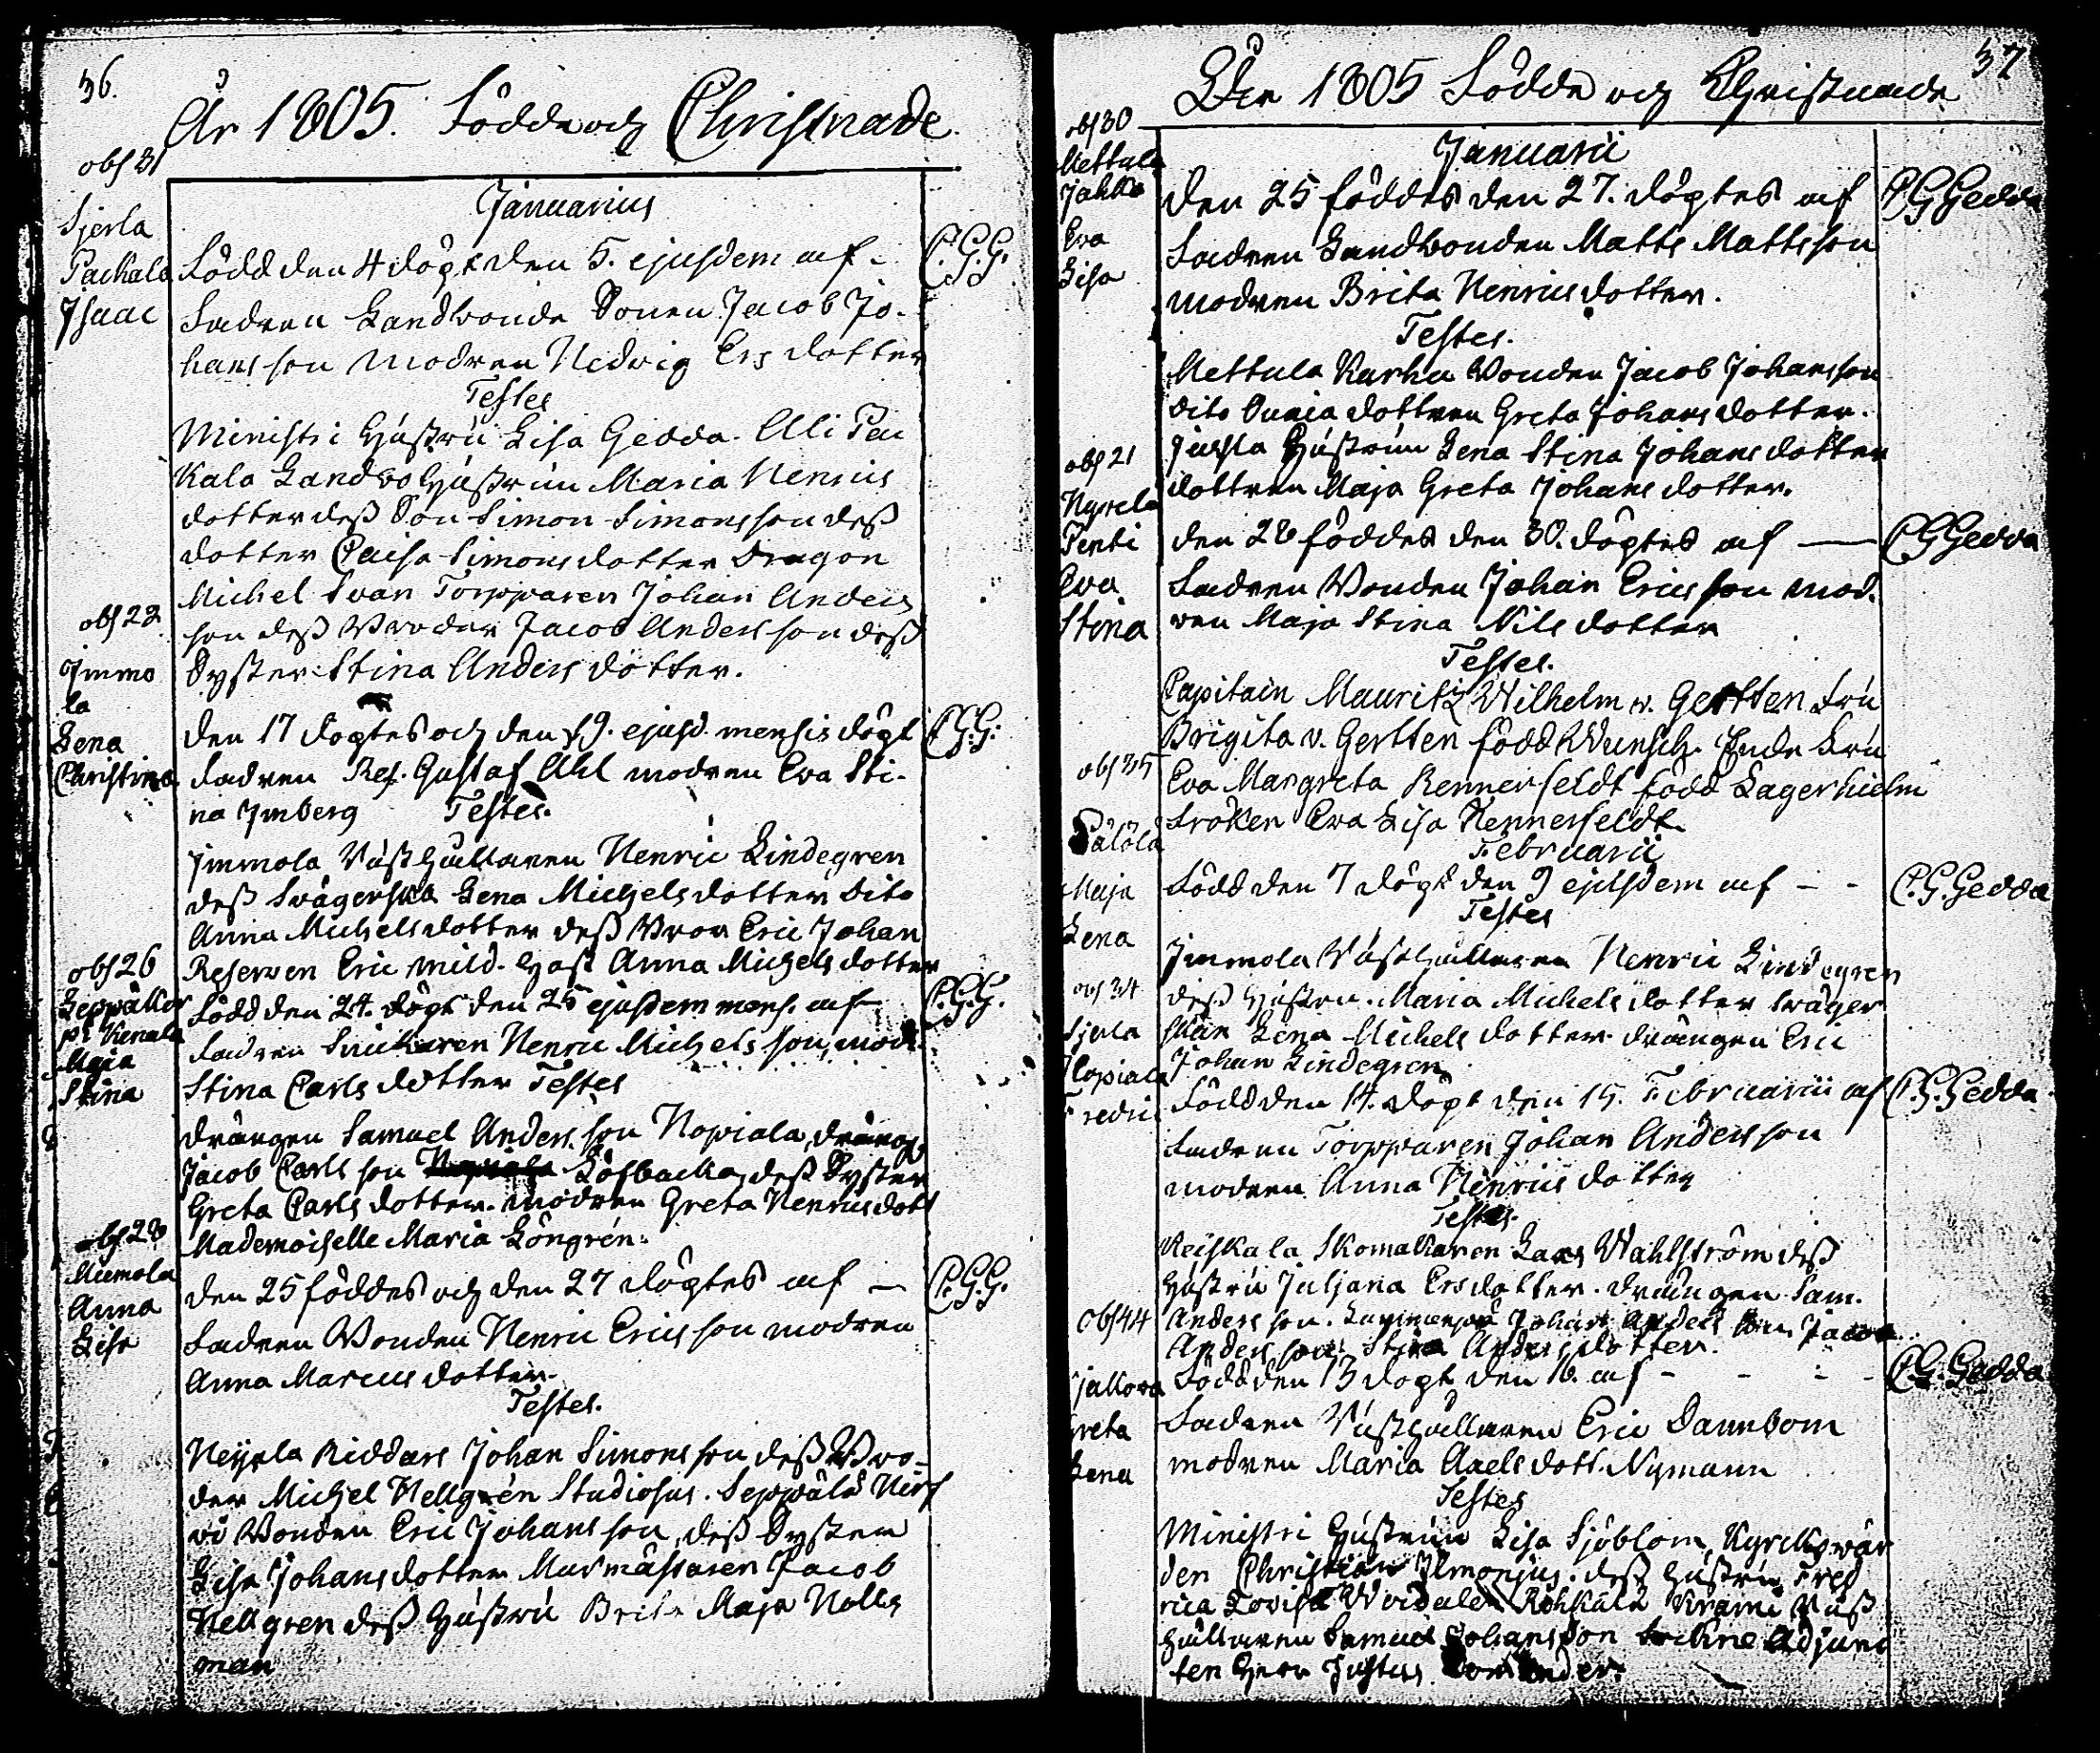 36.
År 1805. Födde och Christnade
obs 31
Januarius
Sjerla
Packala
Isaac
Född den 4 döpt den 5. ejusdem af - C.G.G.
Fadren Landbonde Sonen Jacob Jo-
hansson modren Hedvig Ersdotter
Testes
Ministri Hustru Lisa Gedda. Alli Pac
kala Landbo Hustrun Maria Henrics
dotter dess Son Simon Simonsson dess
dotter Caisa Simonsdotter Dragon
Michel Svan Torpparen Johan Anders
son dess Broder Jacob Andersson dess
Syster Stina Andersdotter.
obs 22
Immo
la
Lena
Christina
den 17 och den 19. ejusd. mensis döpt C.G.G.
fadren Ref. Gustaf Ahl modren Eva Sti-
na Imberg Testes.
Immola Henric Lindegren
dess Svägerska Lena Michelsdotter dito
Anna Michelsdotter dess Eric Johan
Reserven Eric Anna Michelsdotter
obs 26
Maja
Stina
Född den 24. döpt den 25 ejusdem mens. af C.G.G.
Fadren Henric Michelsson, mod.
Stina Carlsdotter Testes
drängen Samuel Andersson Hopiala, dräng
Jacob Carlsson Löfbacka, dess Syster
Greta Carlsdotter. modren Greta Henricsdott
Mademoiselle Maria Löngrén.
obs 28
Miemola
Anna
Lisa
den 25 föddes och den 27 döptes af — C.G.G.
Fadren Bonden Henric Ericsson modren
Anna Marcusdotter.
Testes.
Riddars Johan Simonsson dess Bro-
der Michel Hellgrén Studiosus. Seppälä Hirf
vi Bonden Eric Johansson, dess Syster
Lisa Johansdotter Murmästaren Jacob
Hellgren dess Hustru Brita Maja Holls
man
37
År 1805 Födde och Christnade
Januarii
obs 30
Mettula
Jakko
Eva
Lisa
den 25 föddes den 27. döptes af C G Gedda
Fadren Landbonden Matts Mattsson
modren Brita Henricsdotter.
Testes.
Mettula Karhu Bonden Jacob Johansson
dito dottren Greta Johansdotter.
Hustrun Lena Stina Johansdotter
dottren Maja Greta Johansdotter.
obs 21
Penti
Eva
Stina
den 28 föddes den 30. döptes af — C G Gedda
Fadren Bonden Johan Ericsson mod.
ren Maja Stina Nilsdotter
Testes.
Capitain Mauritz Wilhelm v. Gertten Fru
Brigita v. Gertten född Wunsch. Fru
Eva Margreta Rennerfeldt född Lagerhielm
Fröken Eva Lisa Rennerfeldt.
Februarii
obs 35
Pälölä
Maja
Lena
Född den 7 döpt den 9 ejusdem af - - C.G.Gedda
Testes
Immola Henric Lindegren
dess Hustru. Maria Michelsdotter Sväger
skan Lena Michelsdotter drängen Eric
Johan Lindegren
obs 34
Sjerla
Hopiala
Fredric
Född den 14. döpt den 15. Februarii af C.G.Gedda.
Fadren Torpparen Johan Andersson
modren Anna Henricsdotter
Testes.
Heiskala Skomakaren Lars Wahlström dess
Hustru Juljana Ersdotter. drängen Sam.
Andersson. Johan Andersson Jacob
Andersson Stina Andersdotter.
obs 44
Greta
Lena
Född den 13 döpt den 16. af - - - - C.G.Gedda
Fadren Eric Dannbom
modren Maria Axelsdott. Nymann
Testes
Ministri Hustrun Lisa Sjöblom, Kyrckowär
den Christian Ilmonjus. dess Hustru Fred
rica Lovisa
Samuel Johansson Adjunc
ten Herr Justus